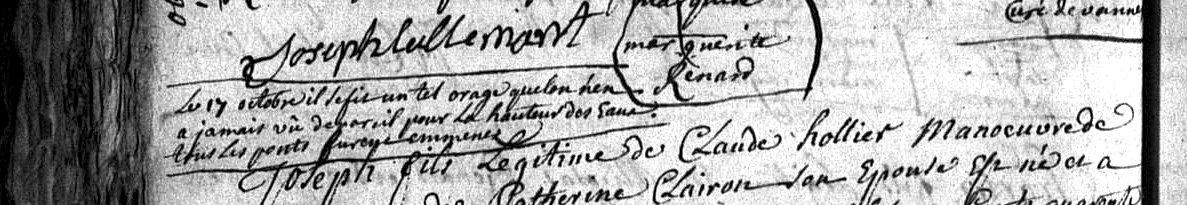 Curé de vanne
Joseph Lallemant
marguerite
Renard
Le 17 octobre il se fit un tel orage que lon nen
a jamais vü de pareil pour La hauteur des Eaux.
tous Les ponts furent emmenez
Joseph fils Legitime de Claude hollier Manoeuvre de
Catherine Clairon son Epouse Est né et a